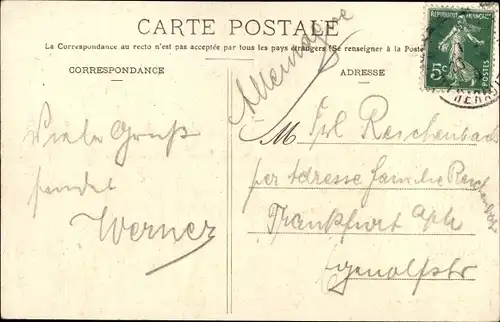 CARTE POSTALE
La Correspondance au recto n'est pas acceptée par tous les pays étrangers (Se renseigner à la Poste
CORRESPONDANCE
ADRESSE
REPUBLIQUE FRANÇAISE
5c
POSTES
Allemagne
Viele Gruß
sendet
Werner
M Frl Reichenbach
per Adresse Familie Reichenbach
Frankfurt a/M